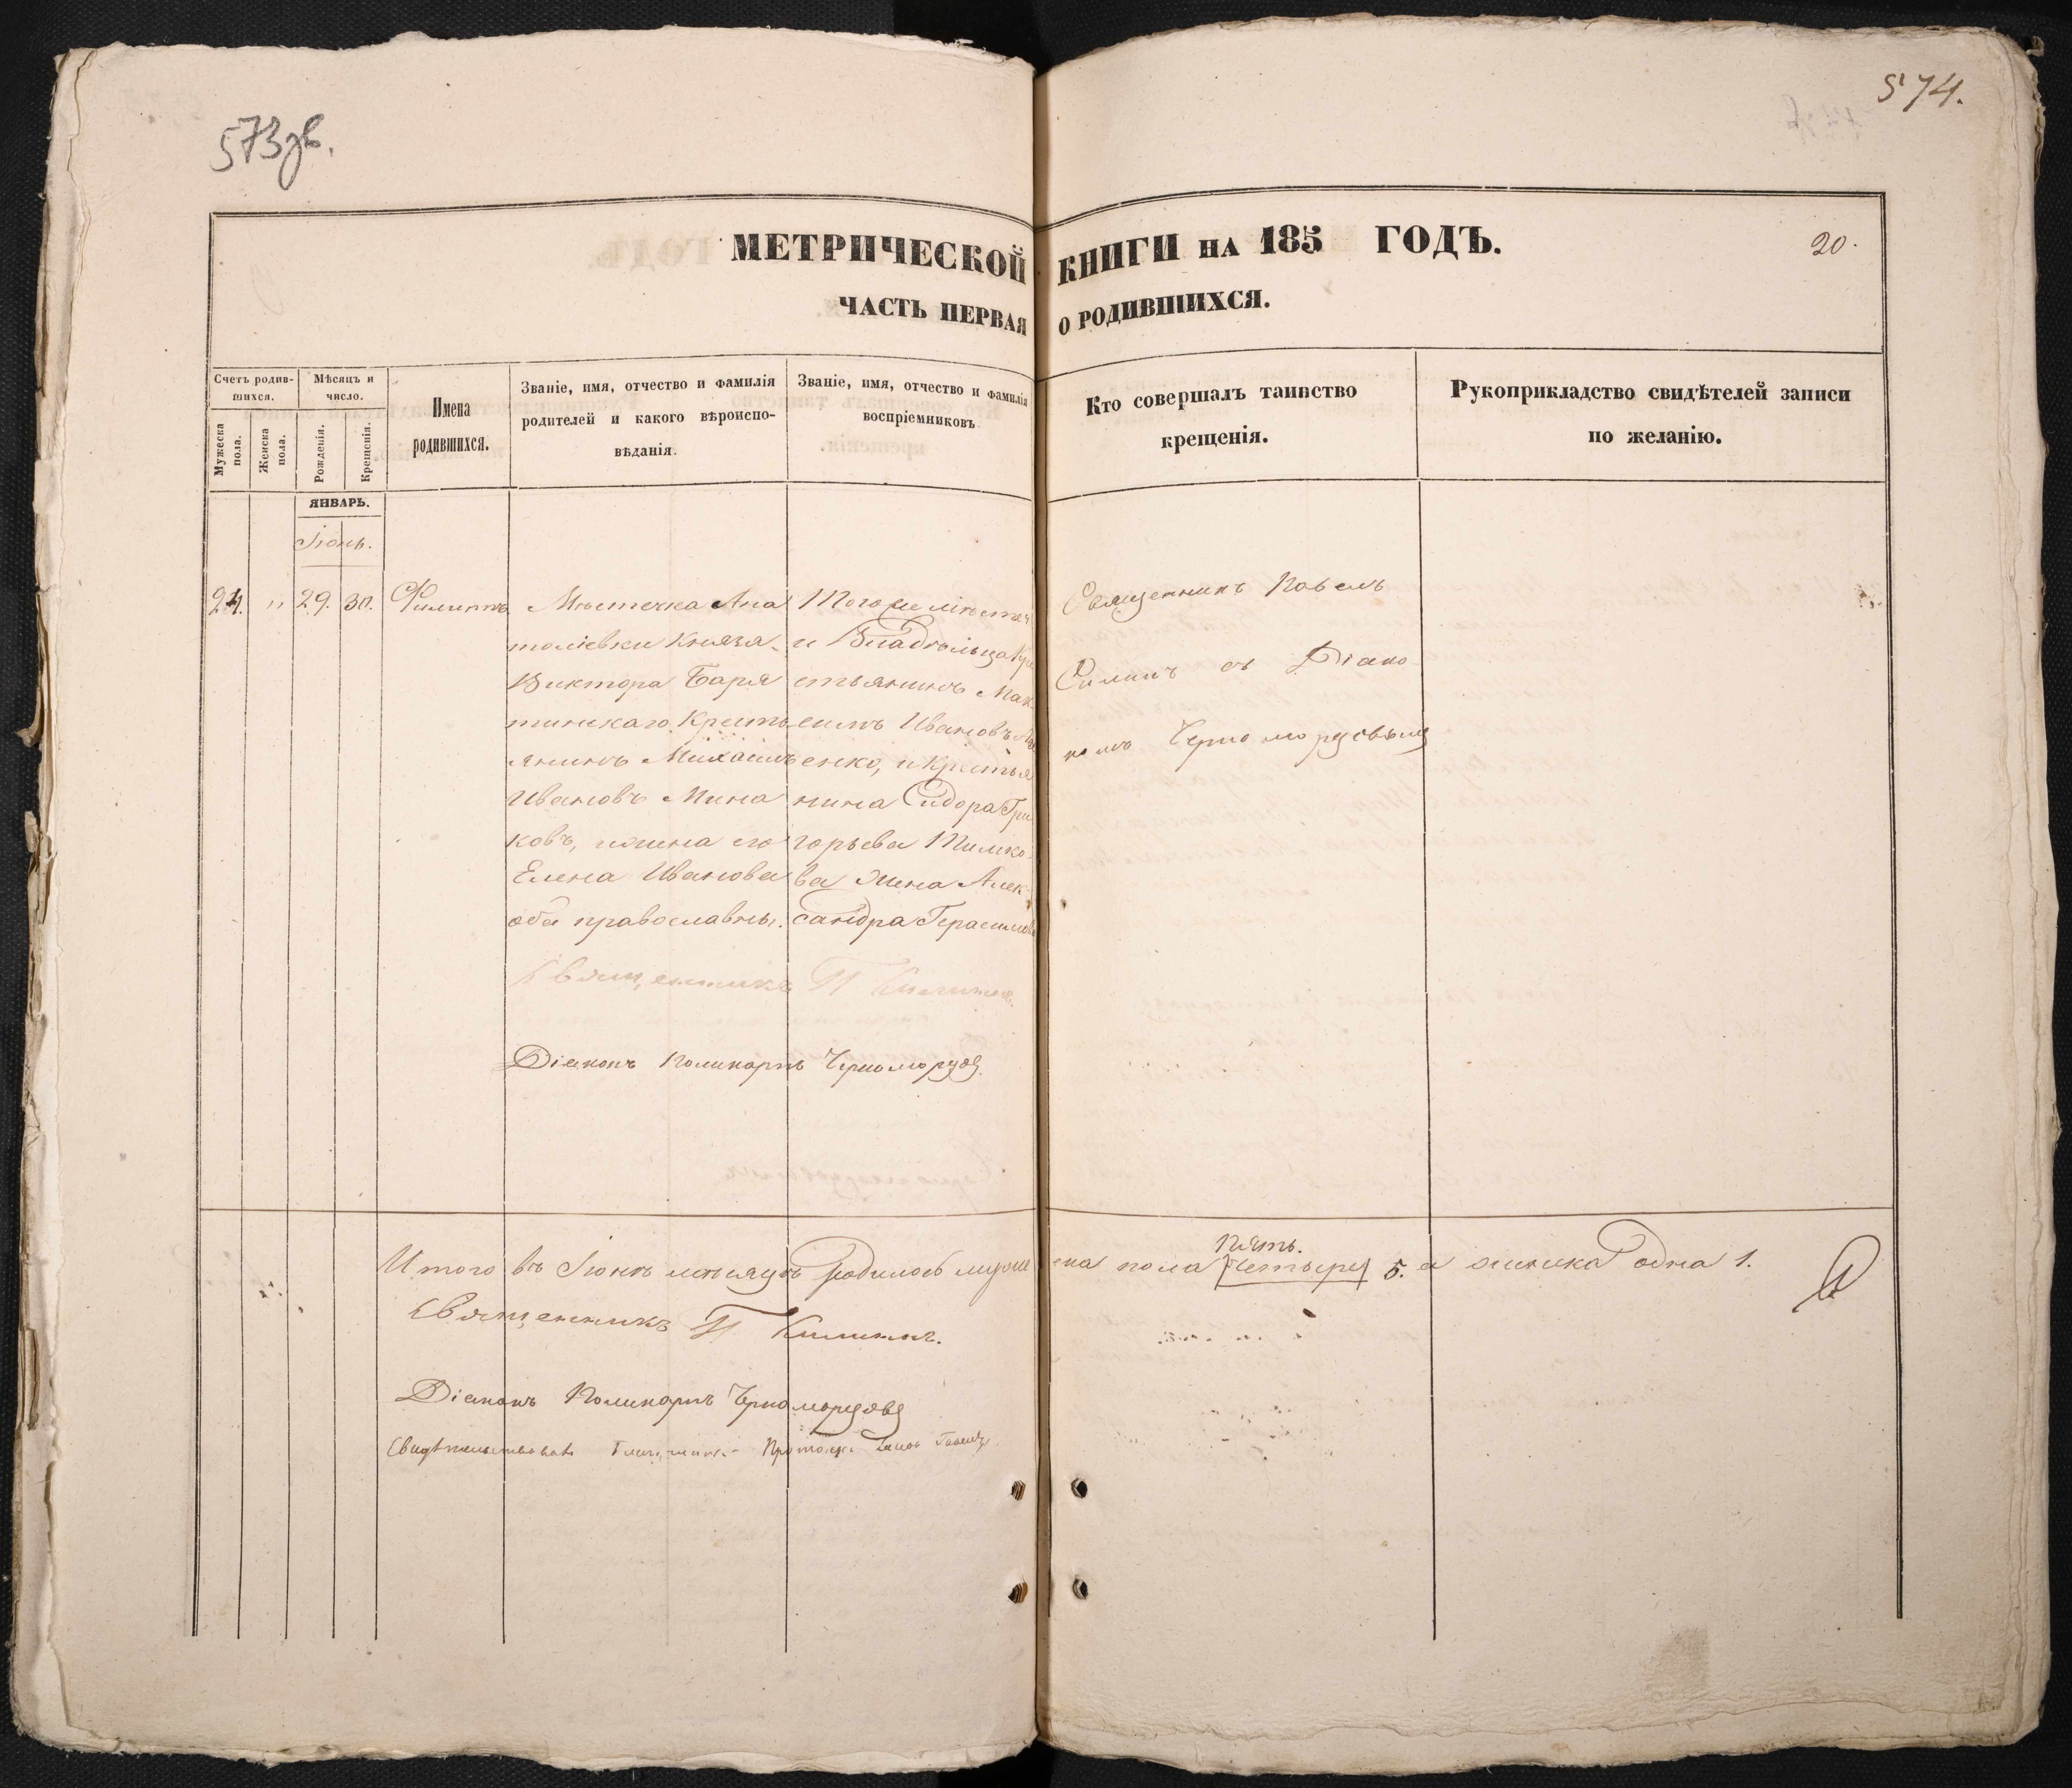 573зв.
574.
20.
МЕТРИЧЕСКОЙ КНИГИ НА 185 ГОДЪ.
ЧАСТЬ ПЕРВАЯ О РОДИВШИХСЯ.
Счетъ родив-
шихся.
Мужеска
пола.
Женска
пола.
Мѣсяцъ и
число.
Рожденія.
Крещенія.
Имена
родившихся.
Званіе, имя, отчество и фамилія
родителей и какого вѣроиспо-
вѣданія.
Званіе, имя, отчество и фамилія
воспріемниковъ
Кто совершалъ таинство
крещенія.
Рукоприкладство свидѣтелей записи
по желанію.
ЯНВАРЬ.
Іюнь.
24. " 29. 30. Филиппъ
Мѣстечка Ана
толіевки Князя
Виктора Баря
тинскаго Кресть
янинъ Михаилъ
Ивановъ Мина
ковъ, и жена его
Елена Иванова
оба православны.
Того же мѣстеч
и Владѣльца Кре
стьянинъ Мак
симъ Ивановъ
енко, и Крестья
нина Сидора Гри
горьева Тимко
ва жена Алек
сандра Герасимова
Священникъ Павелъ
Силинъ съ Діако
номъ Черноморцовымъ
Священникъ П
Діаконъ Поликарпъ Черноморцовъ.
Итого въ Іюнѣ мѣсяцѣ родилось муже ска пола четыре 5. а женска одна 1.
пять.
Священникъ П
Діаконъ Поликарпъ Черноморцовъ
Свидѣтельствовалъ